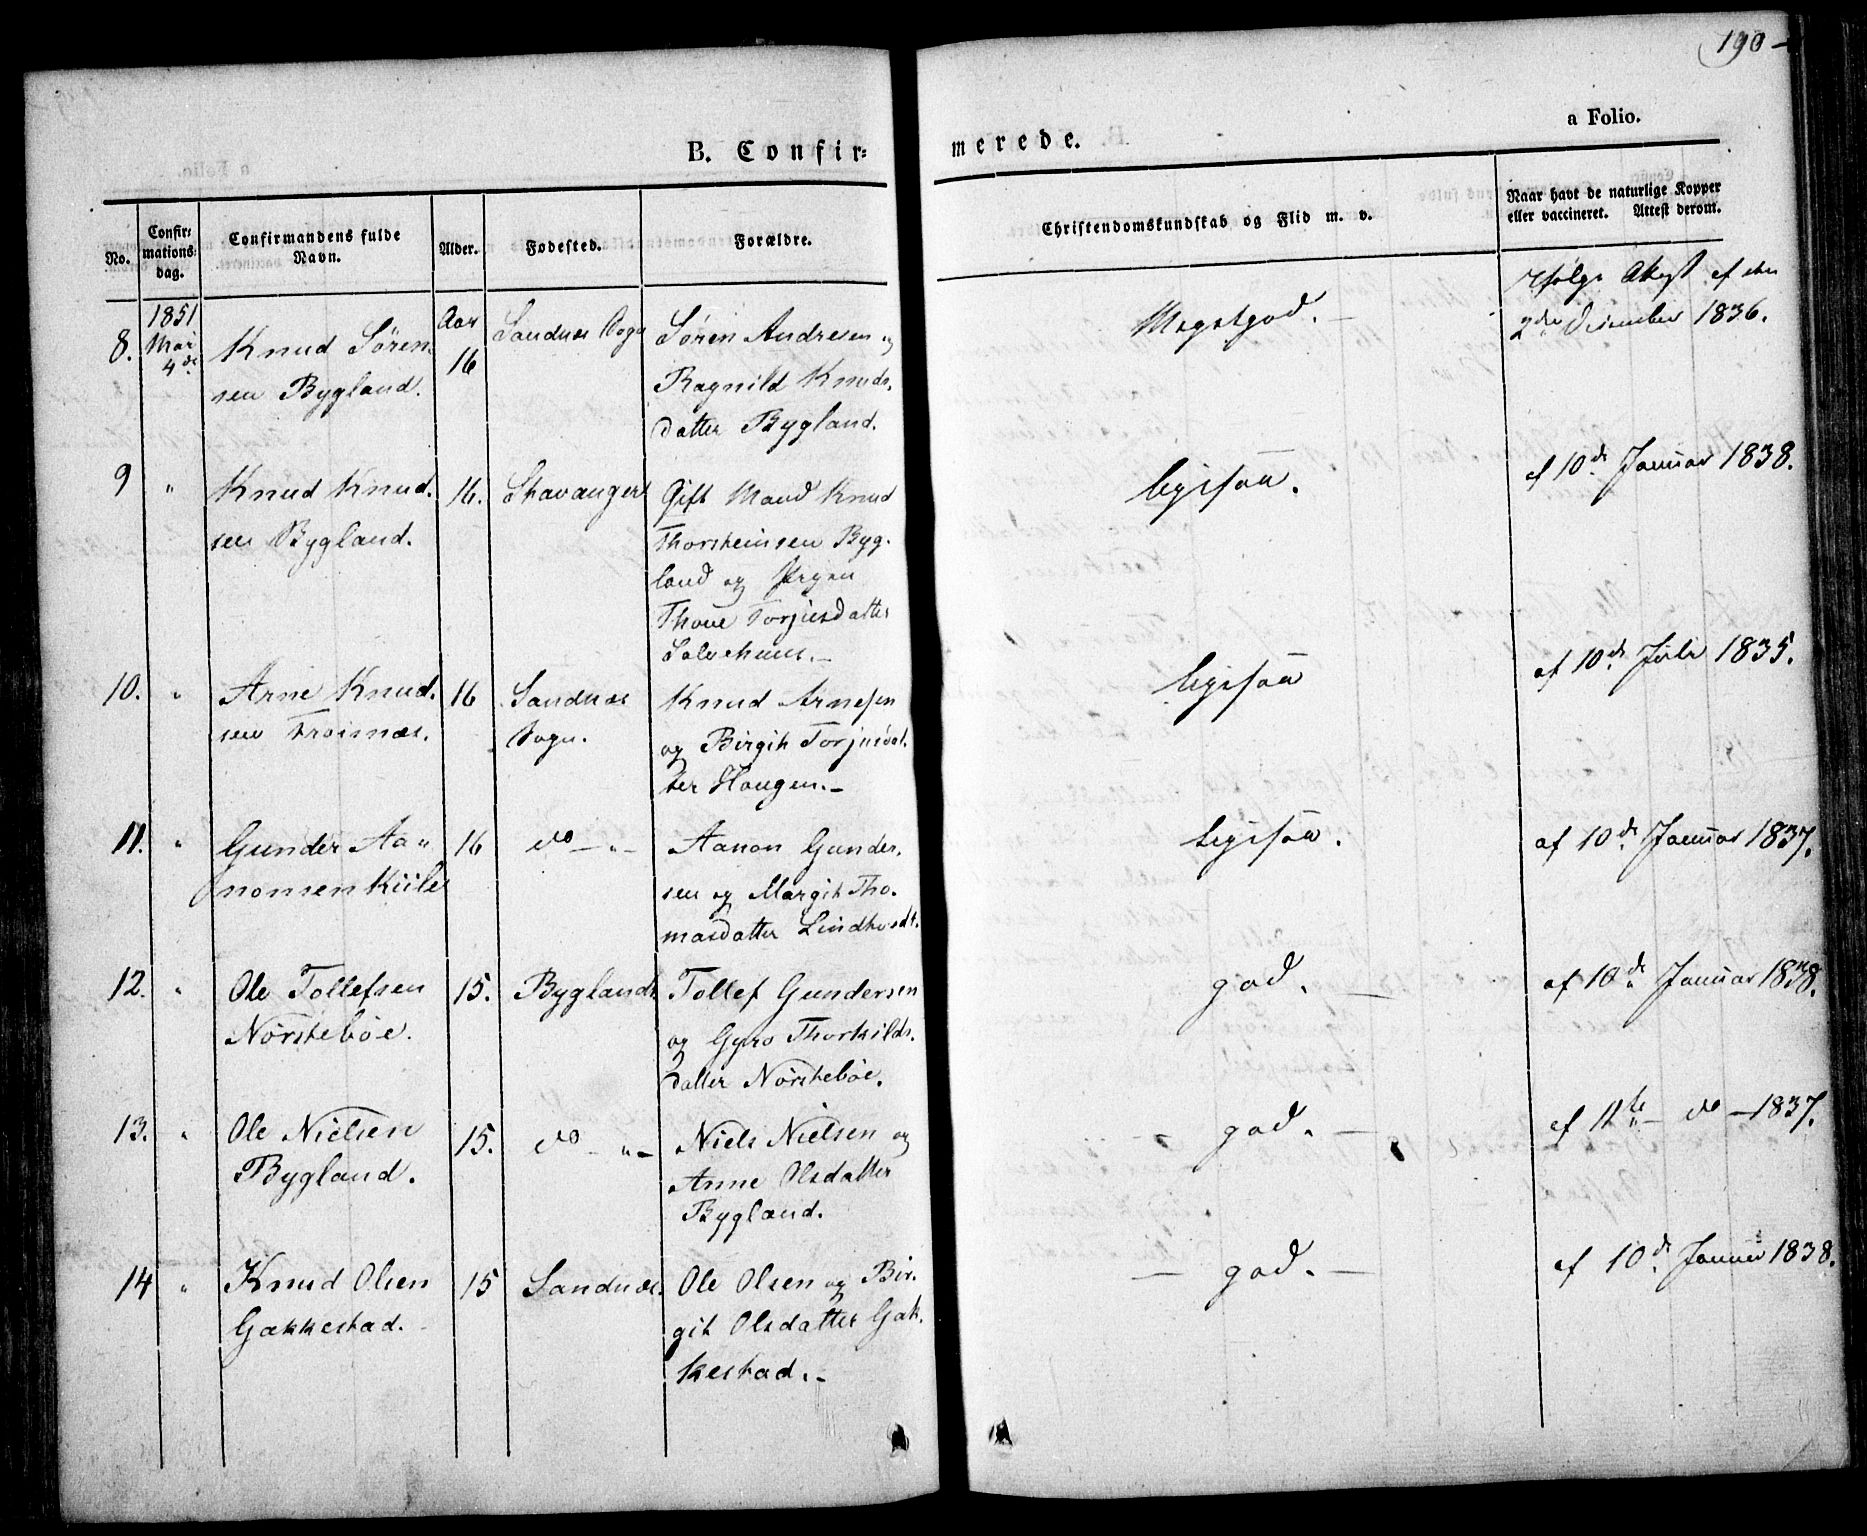 190
a Folio.
B. Confir=
merede.
No.
Confir=
mations=
dag.
Confirmandens fulde
Navn.
Alder.
Fødested.
Forældre.
Christendomskundskab og Flid m. v.
Naar havt de naturlige Kopper
eller vaccineret. Attest derom.
8.
1851
Mai
4de
Knud Søren-
sen Bygland.
Aar
16
Sandnes Sogn
Søren Andresen og
Ragnild Knuds-
datter Bygland.
Megetgod. —
Ifølge Attest af den
2den December 1836.
9
"
Knud Knud-
sen Bygland.
16.
Stavanger
Gift Mand Knud
Thorsteinsen Byg-
land og Pigen
Thone Torjusdatter
ligesaa.
af 10de Januar 1838.
10.
"
Arne Knud-
sen Froisnæs.
16
Sandnæs
Sogn.
Knud Arnesen
og Birgit Torjusdat-
ter Haugen. —
ligesaa
af 10de Juli 1835.
11.
"
Gunder Aa-
nonsen Kiile
16
do — " —
Aanon Gunder-
sen og Margit Tho-
masdatter
ligesaa.
af 10de Januar 1837.
12.
"
Ole Tollefsen
Nørstebøe.
15.
Byglands
Tollef Gundersen
og Gyro Thorkilds-
datter Nørstebøe.
god. —
af 10de Januar 1838.
13.
"
Ole Nielsen
Bygland.
15.
do — " —
Niels Nielsen og
Anne Olsdatter
Bygland.
— god. —
af 11te — do — 1837.
14
"
Knud Olsen
Gakkestad.
15
Sandnæs.
Ole Olsen og Bir-
git Olsdatter Gak-
kestad. —
— god. —
af 10de Januar 1838.